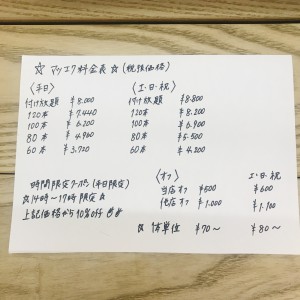 ☆ マツエク料金表 ☆ (税抜価格)
〈平日〉
付け放題 ¥8.000
120本 ¥7.440
100本 ¥6.200
80本 ¥4.960
60本 ¥3.720
〈土・日・祝〉
付け放題 ¥8.800
120本 ¥8.200
100本 ¥6.900
80本 ¥5.500
60本 ¥4.200
時間限定クーポン(平日限定)
☆14時〜17時限定☆
上記価格から10%off
〈オフ〉 土・日・祝
当店オフ ¥500 ¥600
他店オフ ¥1.000 ¥1.100
1本単位 ¥70〜 ¥80〜